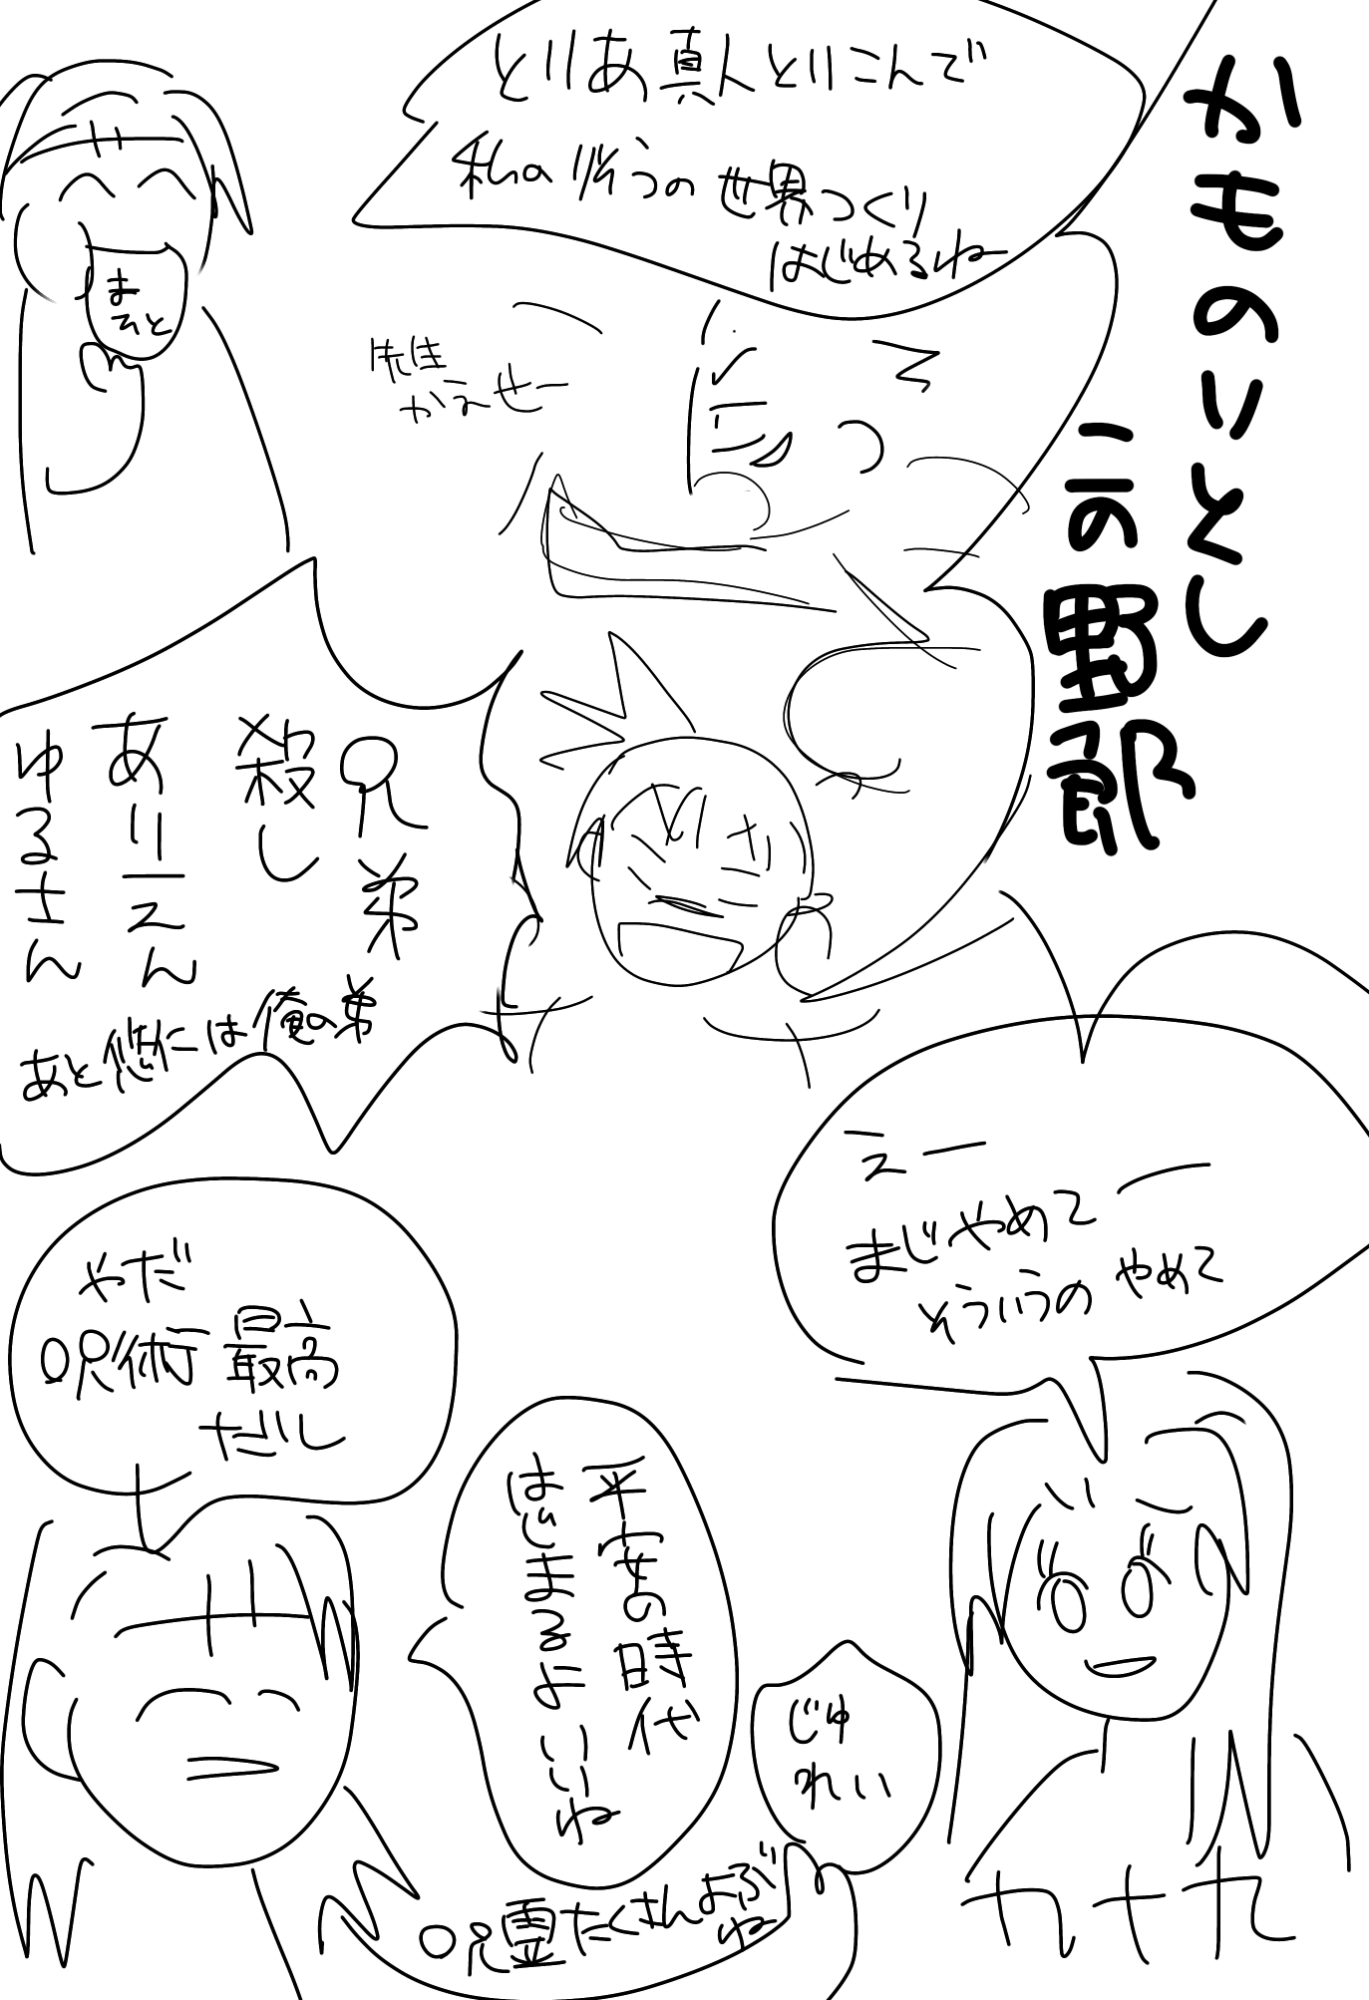 かものりとし
この野郎
とりあ真人とりこんで
私の理そうの世界つくり
はじめるねー
まひと
先生
かえせー
兄弟
殺し
あり一えん
ゆるさん
あと悠仁は俺の弟
えー
まじやめてー
そういうのやめて
やだ
呪術最高
だし
平安の時代
はじまるよいいね
じゅ
れい
呪霊たくさんよぶ
ね
九十九